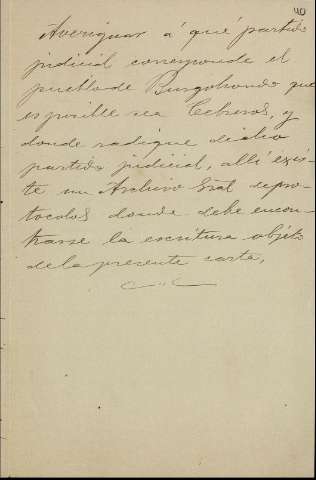 40
Averiguar á qué partido
judicial corresponde el
pueblo de Burgohondo que
es posible sea Cebreros, y
donde radique dicho
partido judicial, allí exis-
te un Archivo Gral de pro-
tocolos donde debe encon-
trarse la escritura objeto
de la presente carta.